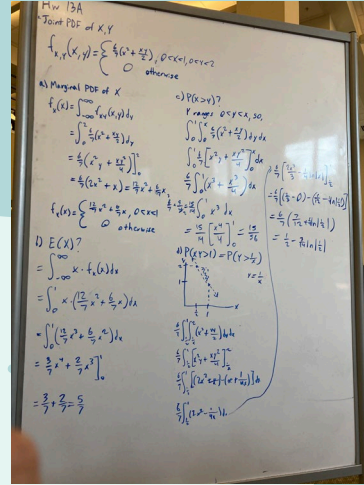 HW 13A
Joint PDF of X,Y
f_{X,Y}(x,y) = { 6/7(x² + xy/2), 0<x<1, 0<y<2
0 otherwise
a) Marginal PDF of X
f_X(x) = ∫_{-∞}^{∞} f_{XY}(x,y)dy
= ∫_0^2 6/7(x² + xy/2)dy
= 6/7(x²y + xy²/4)]_0^2
= 6/7(2x² + x) = 12/7 x² + 6/7 x
f_X(x) = { 12/7 x² + 6/7 x, 0<x<1
0 otherwise
b) E(X)?
= ∫_{-∞}^{∞} x · f_X(x)dx
= ∫_0^1 x · (12/7 x² + 6/7 x)dx
= ∫_0^1 (12/7 x³ + 6/7 x²)dx
= 3/7 x⁴ + 2/7 x³]_0^1
= 3/7 + 2/7 = 5/7
c) P(X>Y)?
Y ranges 0<y<x, so,
∫_0^1 ∫_0^x 6/7(x² + xy/2)dydx
∫_0^1 6/7[x²y + xy²/4]_0^x dx
6/7 ∫_0^1 (x³ + x³/4)dx
6/7 · 5/4 = 15/14 ∫_0^1 x³ dx
= 15/14 [x⁴/4]_0^1 = 15/56
d) P(XY>1) = P(Y>1/x)
y = 1/x
6/7 ∫_{1/2}^1 ∫_{1/x}^2 (x² + xy/2)dydx
6/7 ∫_{1/2}^1 [x²y + xy²/4]_{1/x}^2
6/7 ∫_{1/2}^1 [(2x²+x)-(x+1/4x)]dx
6/7 ∫_{1/2}^1 (2x² - 1/4x)dx